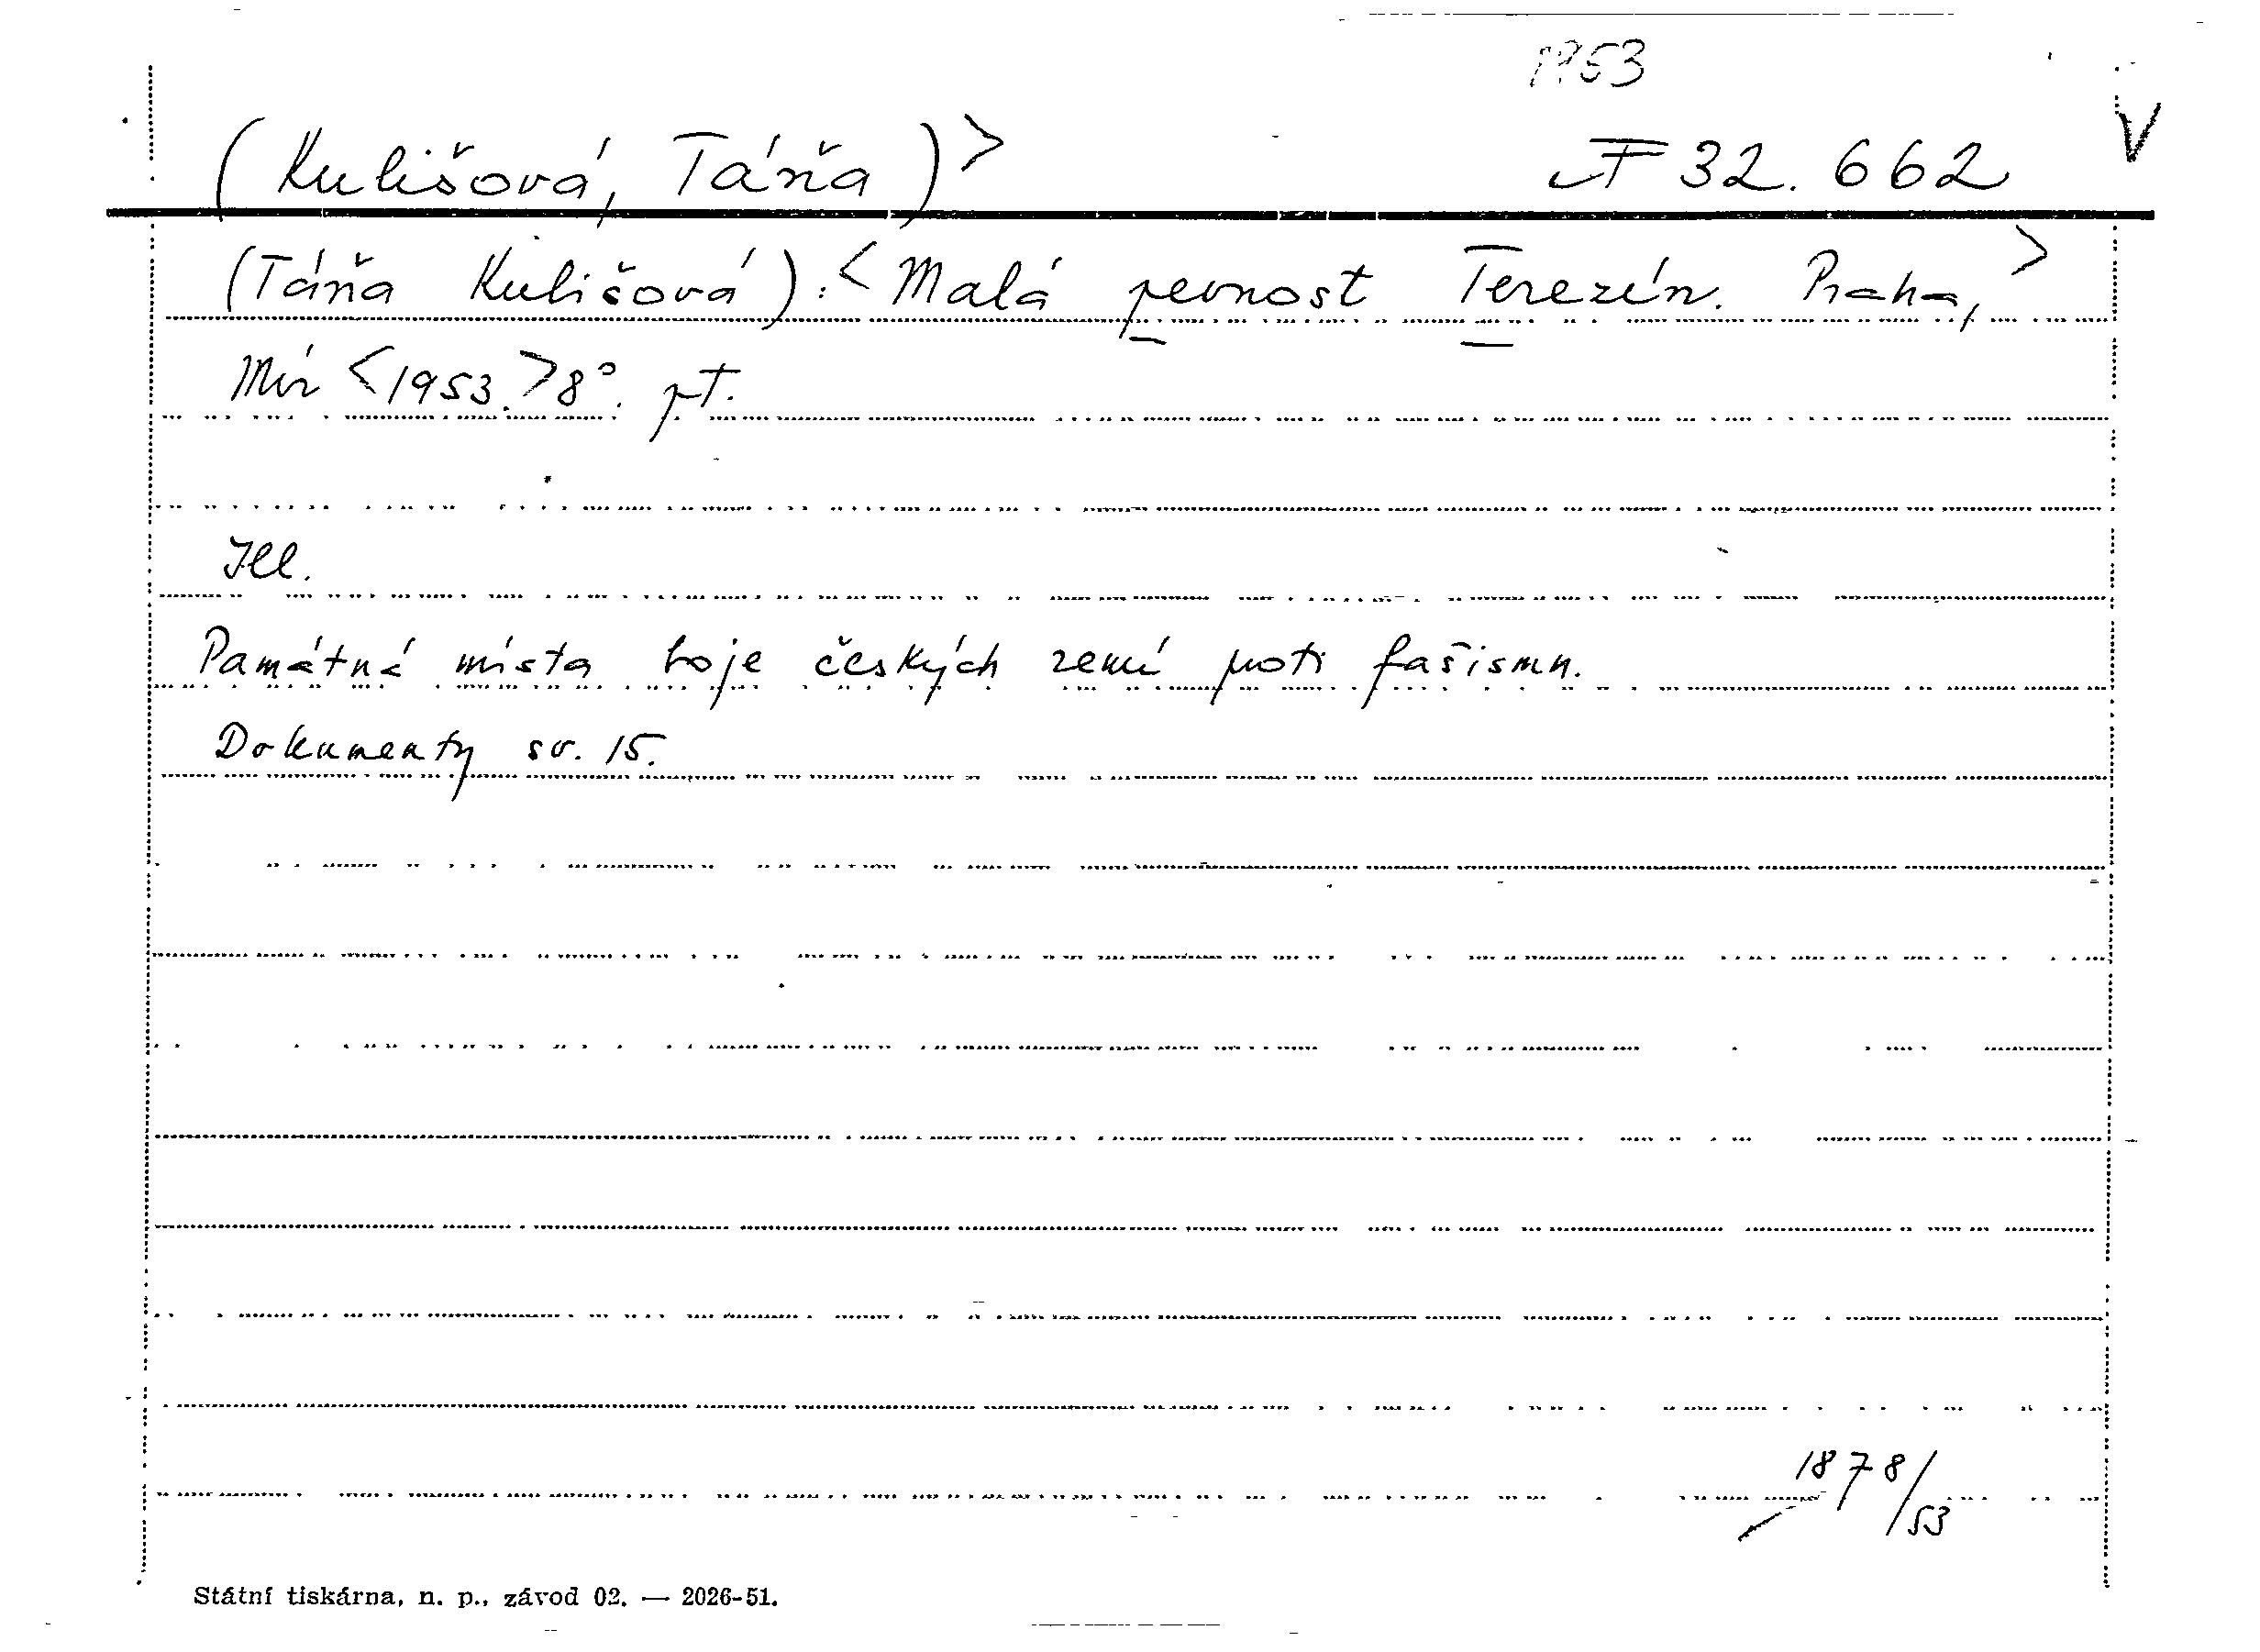 1953
(Kulišová, Táňa)> F 32.662 V
(Táňa Kulišová):<Malá pevnost Terezín. Praha,>
Mír <1953.>8°. pT.
Ill.
Památná místa boje českých zemí proti fašismu.
Dokumenty sv. 15.
1878/53
Státní tiskárna, n. p., závod 02. — 2026-51.